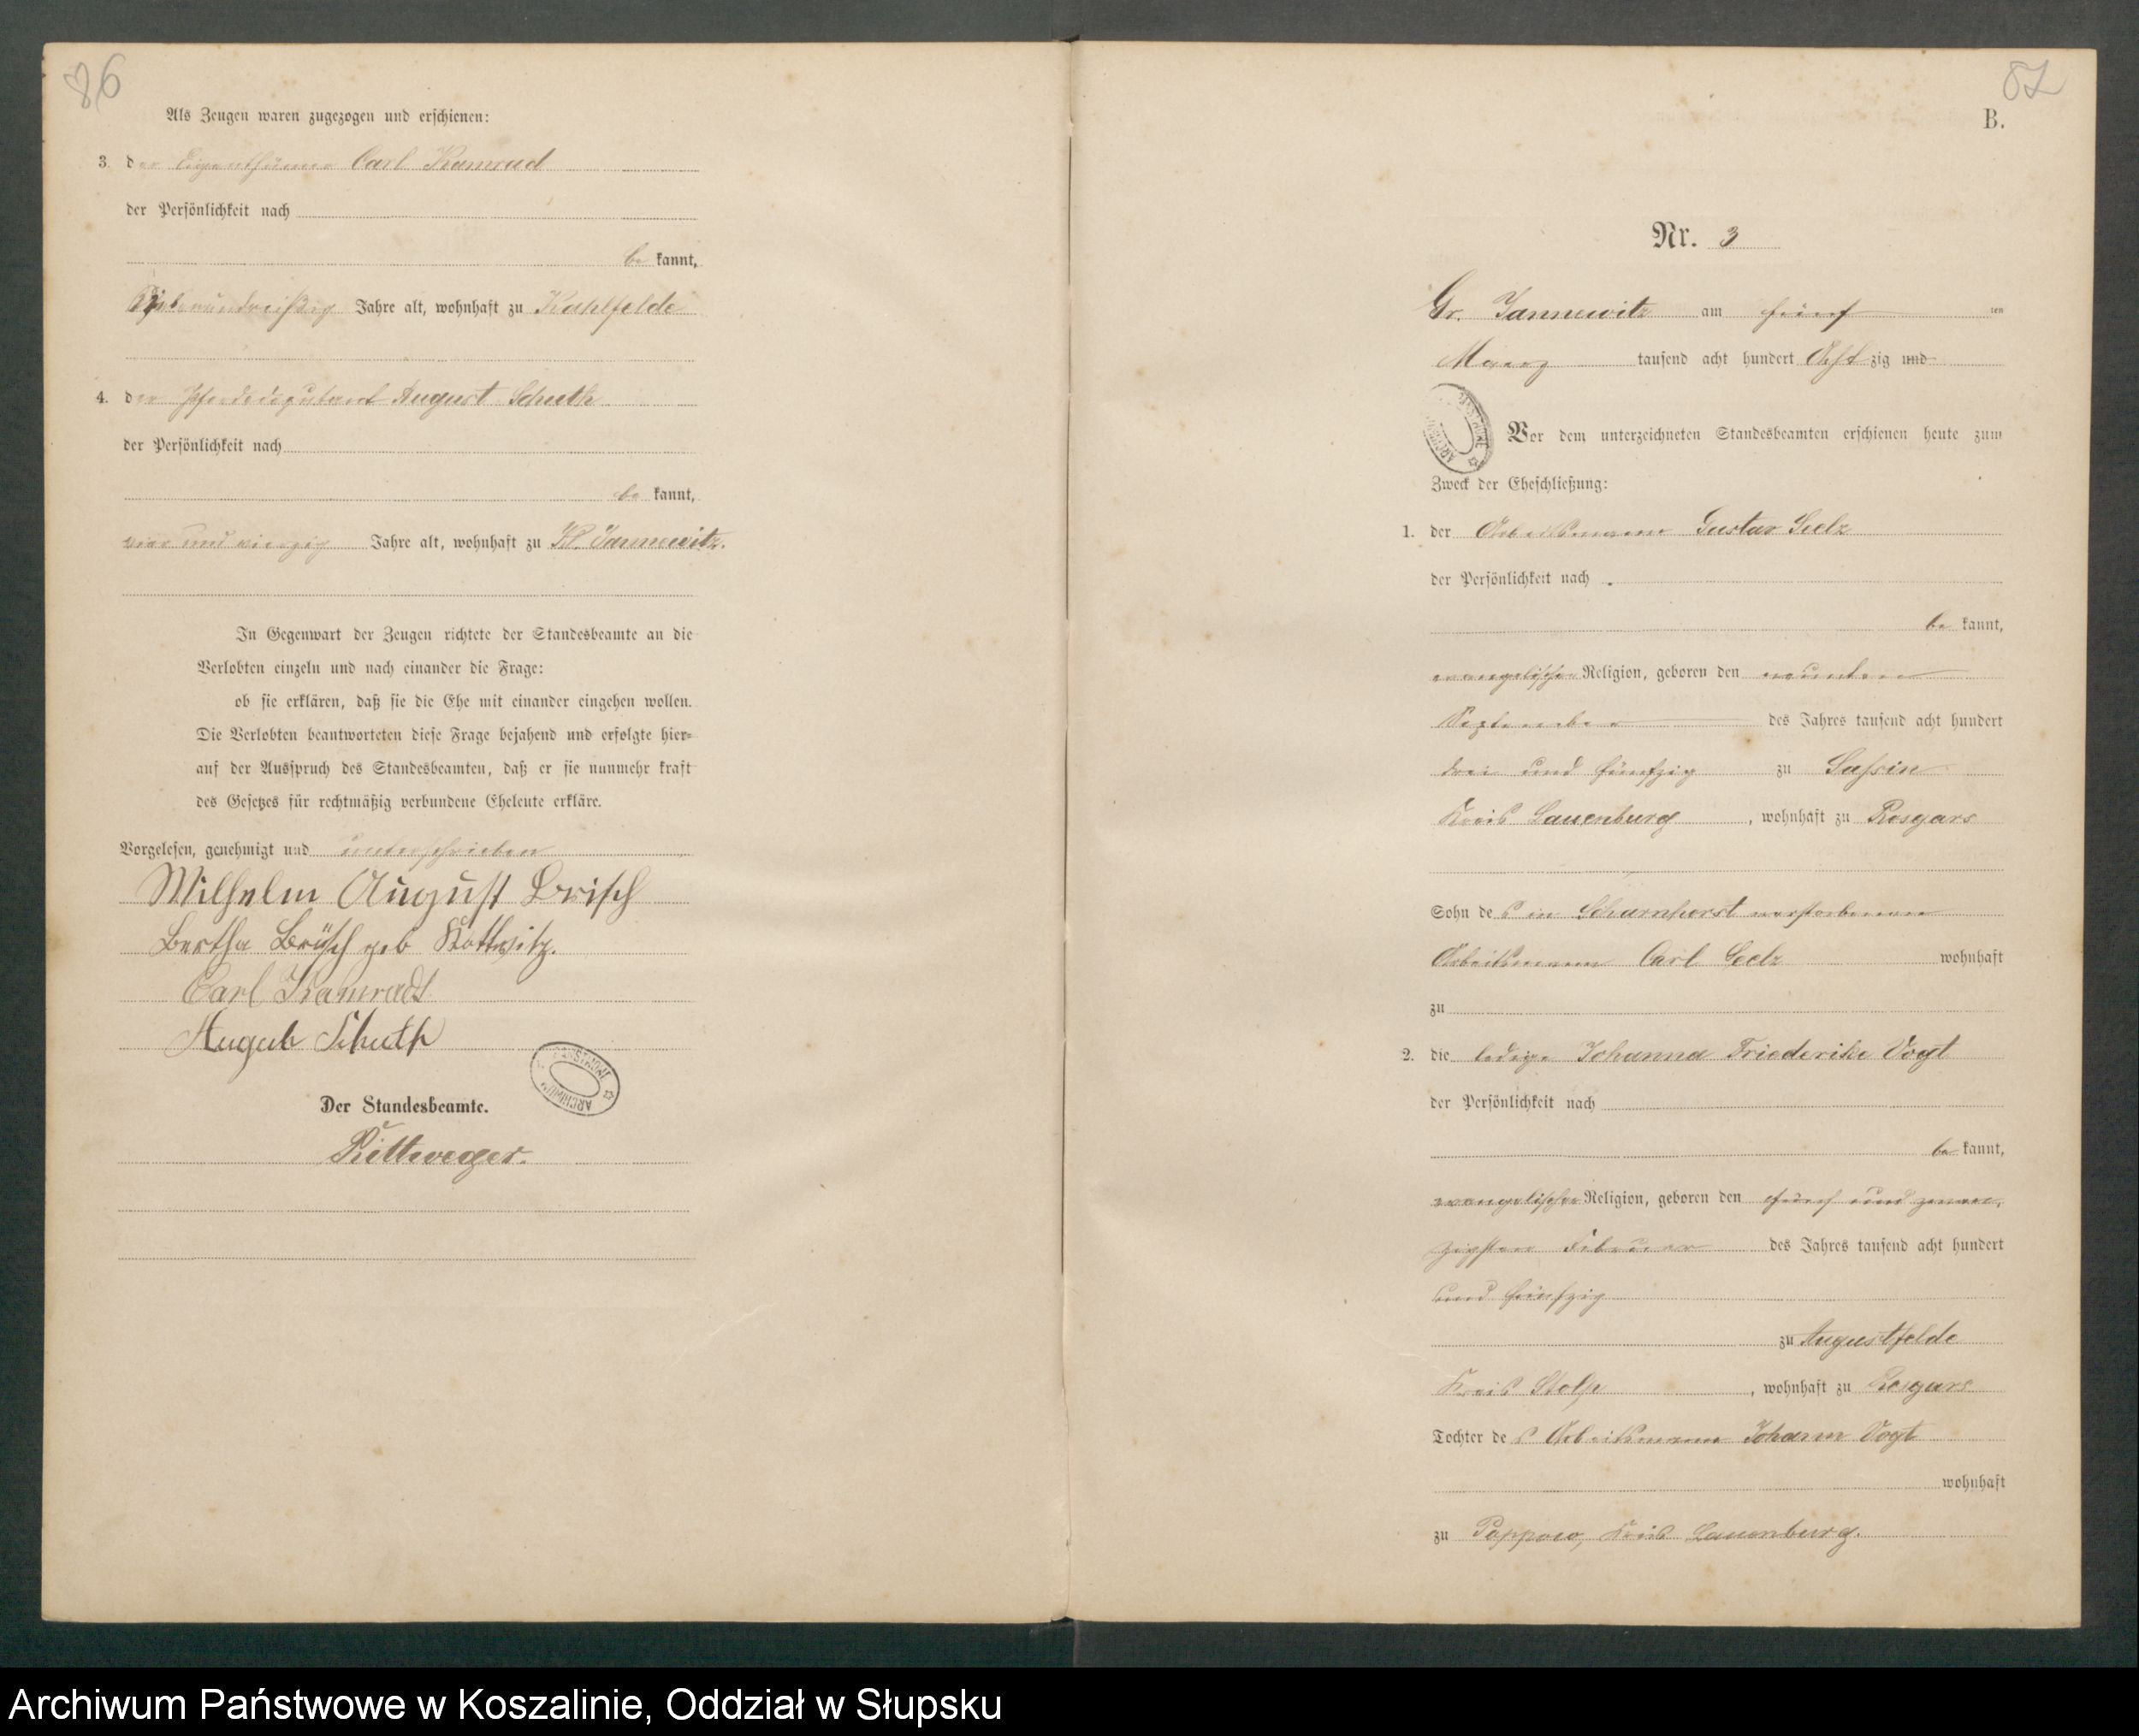 86
Als Zeugen waren zugezogen und erschienen:
3. der Eigenthümer Carl Kamrad
der Persönlichkeit nach
be kannt,
Jahre alt, wohnhaft zu Kahlfelde
4. der August Schuth
der Persönlichkeit nach
be kannt,
vier und vierzig Jahre alt, wohnhaft zu Kl. Jannewitz.
In Gegenwart der Zeugen richtete der Standesbeamte an die
Verlobten einzeln und nach einander die Frage:
ob sie erklären, daß sie die Ehe mit einander eingehen wollen.
Die Verlobten beantworteten diese Frage bejahend und erfolgte hier=
auf der Ausspruch des Standesbeamten, daß er sie nunmehr kraft
des Gesetzes für rechtmäßig verbundene Eheleute erkläre.
Vorgelesen, genehmigt und unterschrieben
Wilhelm August Brisch
Bertha Brüsch geb Kottwitz.
Carl Kamradt
August Schuth
ARCHIWUM PAŃSTWOWE
Der Standesbeamte.
Rittweger.
87
B.
Nr. 3
Gr. Jannewitz am fünf ten
Maerz tausend acht hundert Acht zig und
ARCHIWUM PAŃSTWOWE
Vor dem unterzeichneten Standesbeamten erschienen heute zum
Zweck der Eheschließung:
1. der Arbeitsmann Gustav Seelz
der Persönlichkeit nach
be kannt,
evangelischer Religion, geboren den neunten
September des Jahres tausend acht hundert
drei und fünfzig zu Sassin
Kreis Lauenburg, wohnhaft zu Rosgars
Sohn des in Scharnhorst verstorbenen
Arbeitsmann Carl Seelz wohnhaft
zu
2. die ledige Johanna Friederike Vogt
der Persönlichkeit nach
be kannt,
evangelischer Religion, geboren den fünf und zwan-
zigsten Februar des Jahres tausend acht hundert
und fünfzig
zu Augustfelde
Kreis Stolp, wohnhaft zu Rosgars
Tochter des Arbeitsmann Johann Vogt
wohnhaft
zu Poppow, Kreis Lauenburg.
Archiwum Państwowe w Koszalinie, Oddział w Słupsku